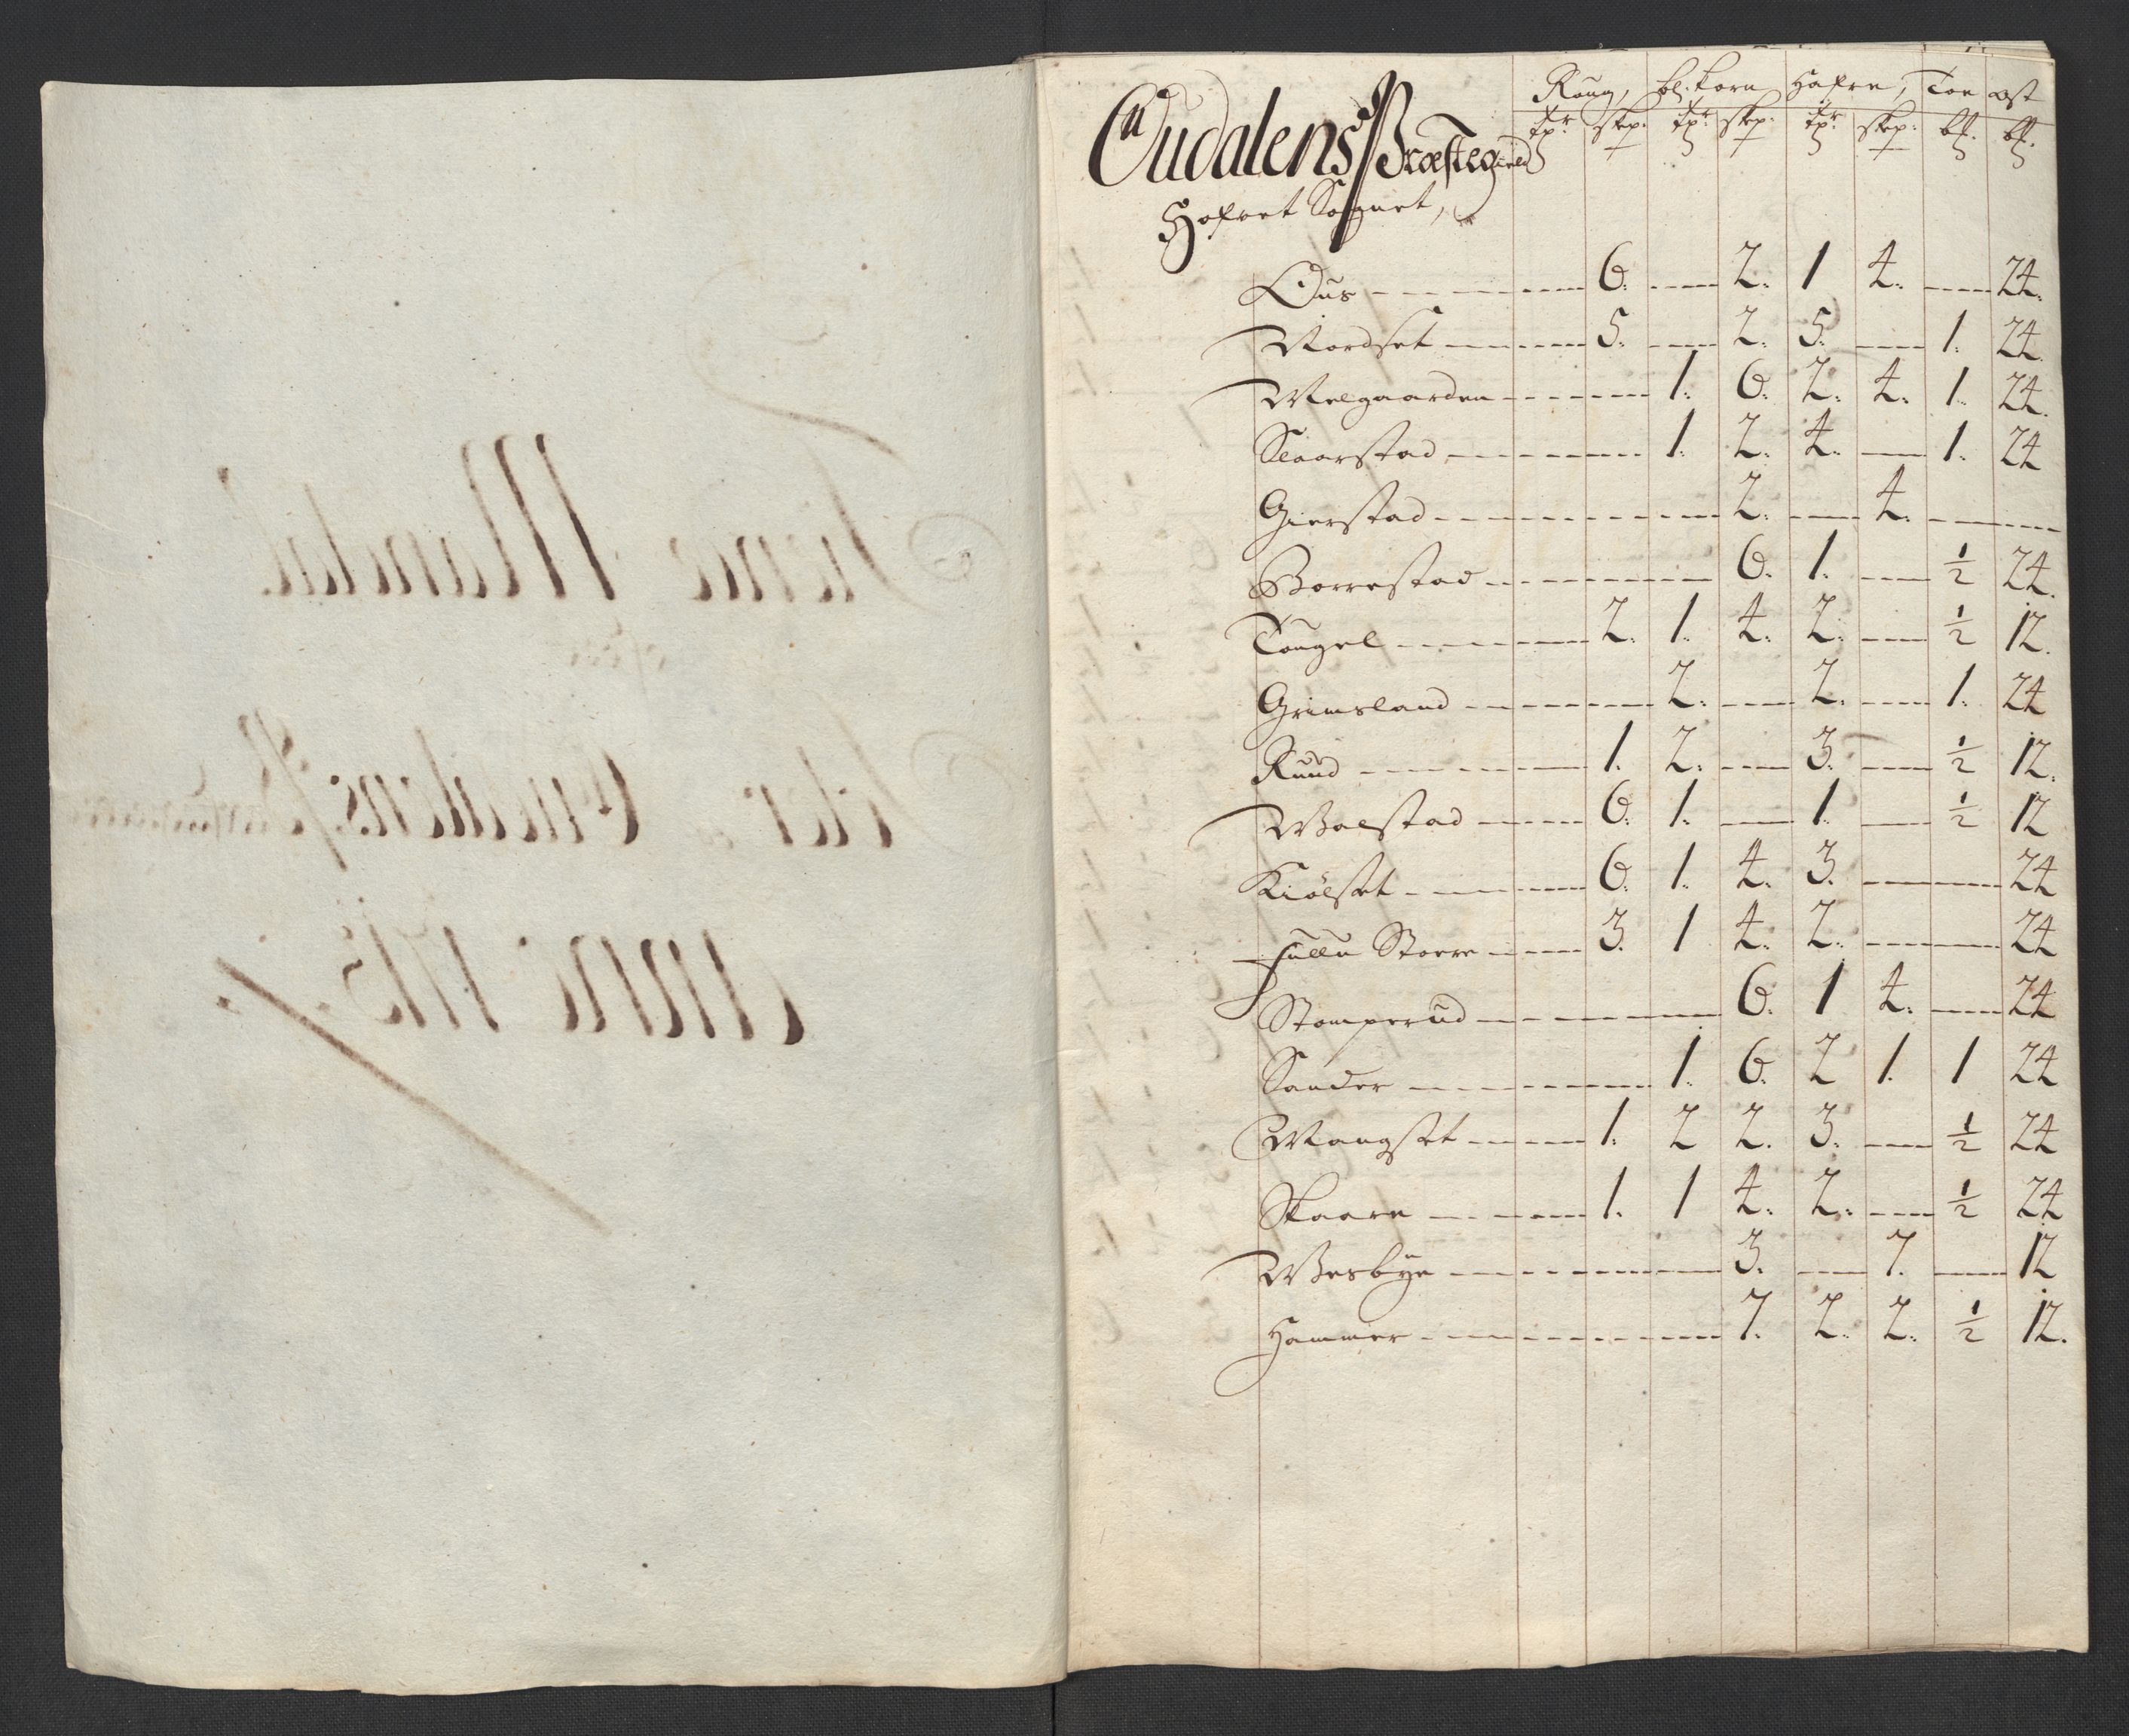 Tiende Mandtal
Ano 1713.
Oudalens Præstegield
Hofvet Sognet,
Roug, bl: korn Hafre, Toe ost
tpr skep: tpr skep: tpr skep: bf. bf.
Ous 6. 2. 1 4. 24.
Nordset 5. 2. 5. 1. 24.
Melgaarden 1. 6. 2. 4. 1. 24.
Slaarstad 1. 2. 4. 1. 24
Gierstad 2. 4.
Borrestad 6. 1. ½ 24.
Tougel 2. 1. 4. 2. ½ 12.
Grimsland 2. 2. 1. 24
Ruud 1. 2. 3. ½ 12.
Walstad 6. 1. 1. ½ 12
Kiølset 6. 1. 4. 3. 24
Fulle Storre 3. 1 4. 2. 24
Stomperud 6. 1 4. 24
Sander 1. 6. 2 1. 1 24
Mangset 1. 2 2. 3. ½ 24
Skaare 1. 1 4. 2. ½ 24
Wesbye 3. 7. 12
Hammer 7. 2. 2. ½ 12.